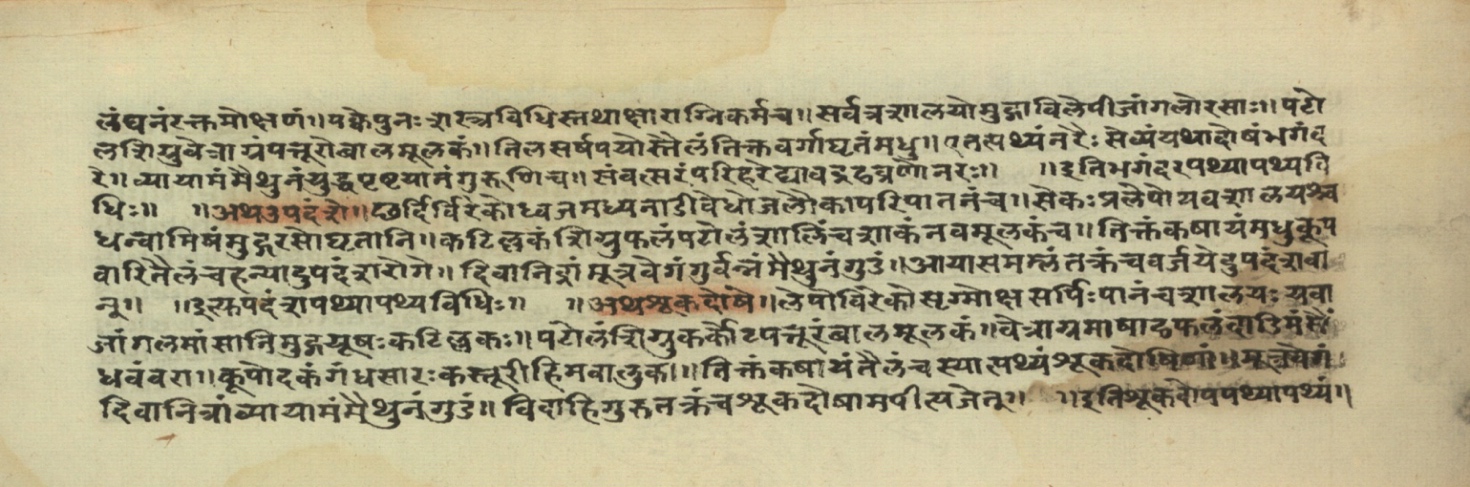 लंघनंरक्तमोक्षणं॥पक्केपुनःशस्त्रविधिस्तथाक्षाराग्निकर्मच॥सर्वत्रशालयोमुद्गाविलेपीजांगलोरसाः॥पटो
लशिग्रुवेत्राग्रंपत्तूरोबालमूलकं॥तिलसर्षपयोस्तैलंतिक्तवर्गाघृतंमधु॥एतत्पथ्यंनरैःसेव्यंयथादोषंभगंद
रे॥व्यायामंमैथुनंयुद्धंपृष्टयानंगुरुणिच॥संवत्सरंपरिहरेद्यावद्रूढव्रणोनरः॥ ॥इतिभगंदरपथ्यापथ्यवि
धिः॥ ॥अथउपदंशे॥छर्दिर्विरेकोध्वजमध्यनाडीवेधोजलौकापरिपातनंच॥सेकःप्रलेपोयवशालयश्च
धन्वामिषंमुद्गरसोघृतानि॥कटिल्लकंशिग्रुफलंपटोलंशालिंचशाकंनवमूलकंच॥तिक्तंकषायंमधुकूप
वारितैलंचहन्यादुपदंशरोगे॥दिवानिद्रांमूत्रवेगंगुर्वन्नंमैथुनंगुडं॥आयासमम्लंतक्रंचवर्जयेदुपदंशवा
न्॥ ॥इत्युपदंशपथ्यापथ्यविधिः॥ ॥अथशूकदोषे॥लेपोविरेकोसृग्मोक्षसर्पिःपानंचशालयःयवा
जांगलमांसानिमुद्गयूषःकटिल्लकः॥पटोलंशिग्रुकर्कोटपत्तूरंबालमूलकं॥वेत्राग्रमाषाढफलंदाडिमंसैं
धवंवरा॥कूपोदकंगंधसारःकस्तूरीहिमवालुका॥तिक्तंकषायंतैलंचस्यात्पथ्यंशूकदोषिणां॥मूत्रवेगं
दिवानिद्रांव्यायामंमैथुनंगुडं॥विदाहिगुरुतक्रंचशूकदोषामयीत्यजेत्॥ ॥इतिशूकदोषपथ्यापथ्यं॥